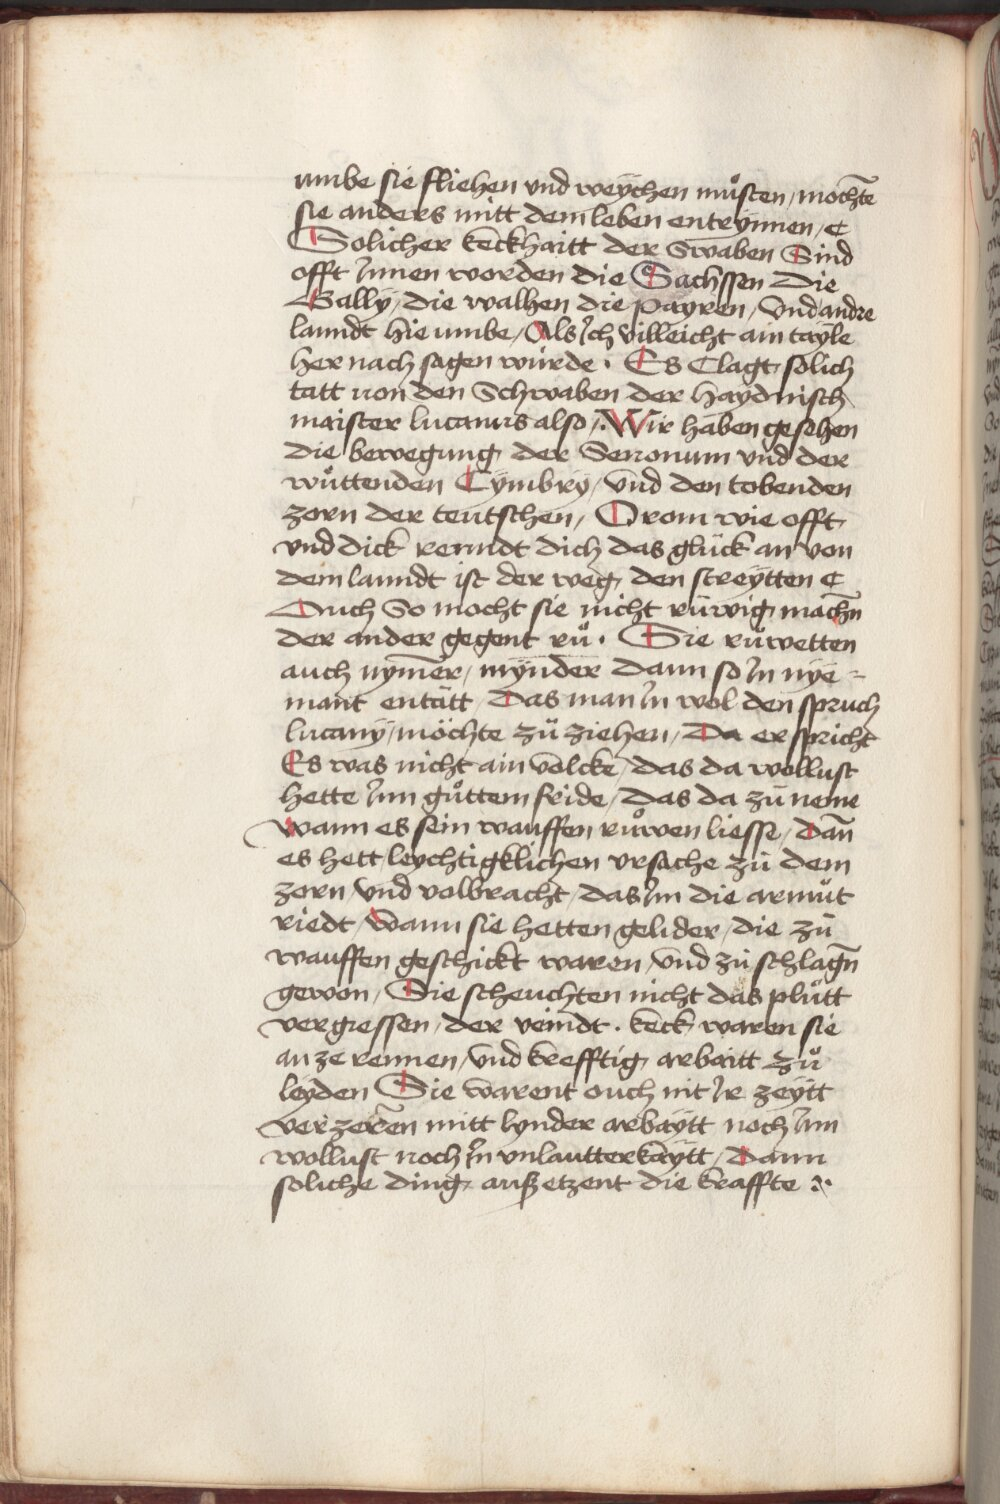 umbe sie fliehen vnd weÿchen muͦsten / mochte͂
sie anders mitt dem leben entrÿnnen / C
Solicher keckhaitt der Swaben Sind
offt Jnnen worden die Sachssen Die
Gallÿ / die walhen die Paÿren / Vnd andre
lanndt hie umbe / Als Jch villeicht ain tayle
her nach sagen würde . Es Clagt solich
tatt von den Schwaben der haÿdnisch
maister lucanus also /. Wir haben gesehen
die bewegung der Senonum vnd der
wuͤttenden Cÿmbrÿ / vnd den tobenden
zorn der teutschen / O rom wie offt
vnd dick renndt dich das glück an von
dem lanndt ist der weg den streÿtten C
Auch So mocht sie nicht ruͤwig mach͂n
der ander gegent ruͦ . Sie ruͦwetten
auch nyme͂r / mÿnder dann so Jn nÿe =
mant entatt / Das man Jn wol den spruch
lucanÿ / möchte zuͦ ziehen / Da er spricht
Es was nicht ain volcke / das da wollust
hette Jnn guͦttem fride / das da zü neme
wann es sein wauffen ruͦwen liesse / Dan͂
es hett leychtigklichen vrsache zuͦ dem
zorn / vnd volbracht / das Jm die armuͦt
riedt / Wann sie hetten gelider / die zuͦ
wauffen geschickt waren / vnd zuͦ schlag͂n
gewon / Sie scheuchten nicht das pluͦtt
vergiessen / der veindt . keck waren sie
an ze rennen / vnd krefftig arbaitt zuͦ
leyden Sie warent ouch nit Jr zeÿtt
verzere͂n mitt lynder arbaÿtt noch Jnn
wollust noch Jn vnlautterkaÿtt / Dann
soliche ding ausz etzent die kraffte :·